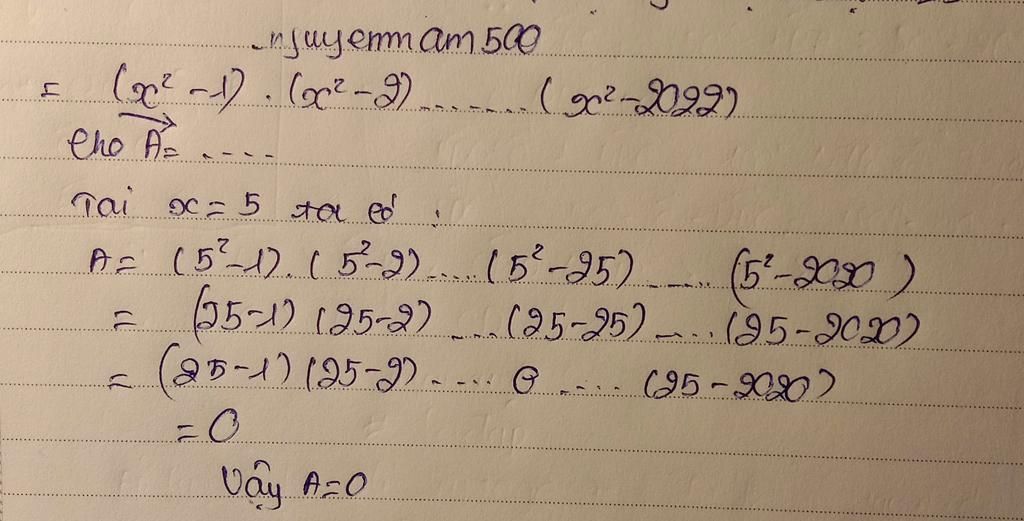 nguyennam500
= (x² - 1) . (x² - 2) ....... (x² - 2022)
Cho A = .....
Tại x = 5 ta có :
A = (5² - 1) . (5² - 2) .... (5² - 25) ...... (5² - 2020)
= (25 - 1) (25 - 2) ... (25 - 25) ..... (25 - 2020)
= (25 - 1) (25 - 2) ..... 0 ..... (25 - 2020)
= 0
Vậy A = 0